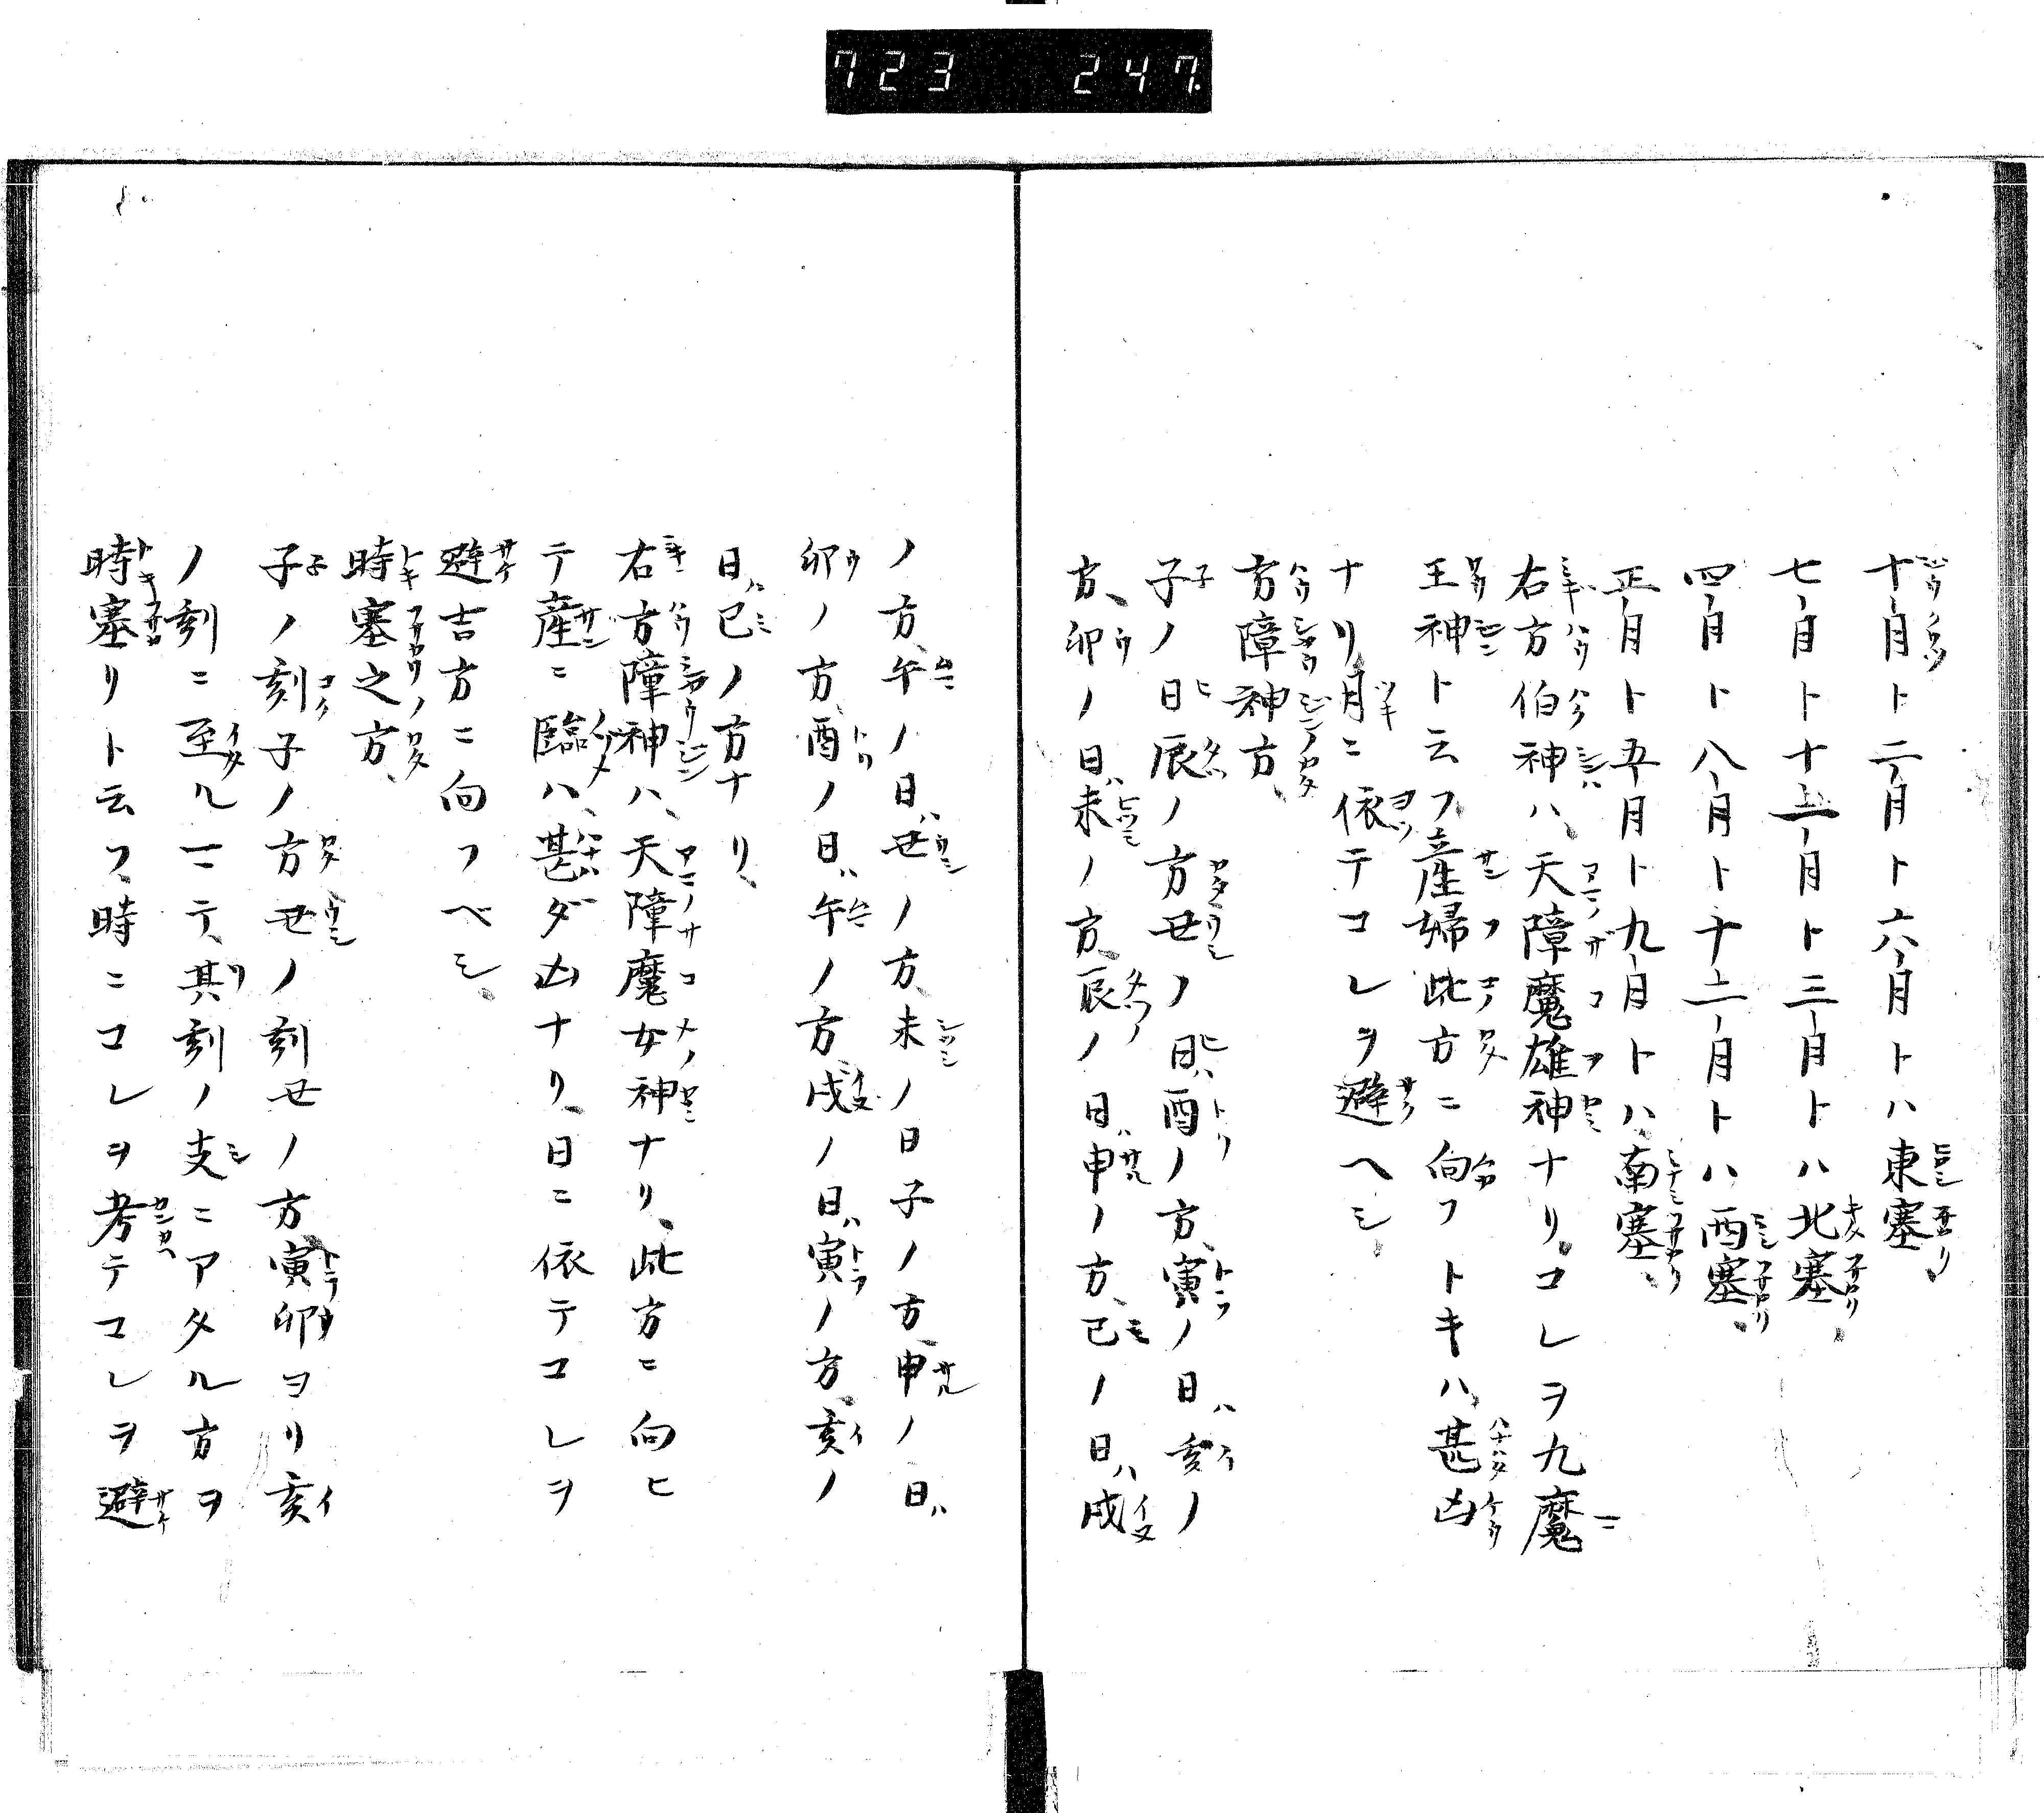 723 247.
十月ト二月ト六月トハ東塞、
七月ト十一月ト三月トハ北塞、
四月ト八月ト十二月トハ西塞、
正月ト五月ト九月トハ、南塞、
右方伯神ハ、天障魔雄神ナリ、コレヲ九魔
王神ト云フ、産婦此方ニ向フトキハ、甚凶
ナリ、月ニ依テコレヲ避ヘシ、
方障神方、
子ノ日辰ノ方、丑ノ日ハ酉ノ方、寅ノ日ハ亥ノ
方、卯ノ日ハ未ノ方、辰ノ日ハ申ノ方、巳ノ日ハ戌
ノ方、午ノ日ハ丑ノ方、未ノ日子ノ方、申ノ日ハ
卯ノ方、酉ノ日ハ午ノ方、戌ノ日ハ寅ノ方、亥ノ
日ハ巳ノ方ナリ、
右方障神ハ、天障魔女神ナリ、此方ニ向ヒ
テ産ニ臨ハ、甚ダ凶ナリ、日ニ依テコレヲ
避吉方ニ向フベシ、
時塞之方、
子ノ刻子ノ方丑ノ刻丑ノ方、寅卯ヨリ亥
ノ刻ニ至ルニテ、其刻ノ支ニアタル方ヲ
時塞リト云フ、時ニコレヲ考テコレヲ避